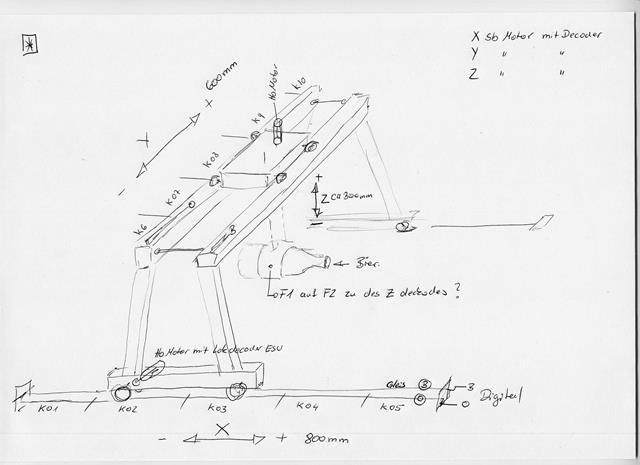 X sb Motor mit Decoder
Y " "
Z " "
600mm
+ X
-
HoMotor
K10
K9
K08
K07
K6
B
+
Z ca 300mm
-
Bier
F1 auf F2 zu des Z decoders ?
Ho Motor mit Lokdecoder ESU
Gleis B
B
O
Digital
K01 / K02 / K03 / K04 / K05
- X + 800mm